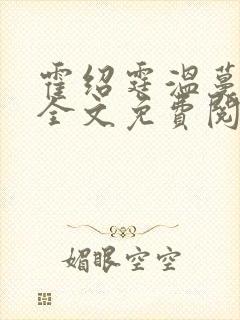 霍绍霆温蔓
全文免费阅
媚眼空空